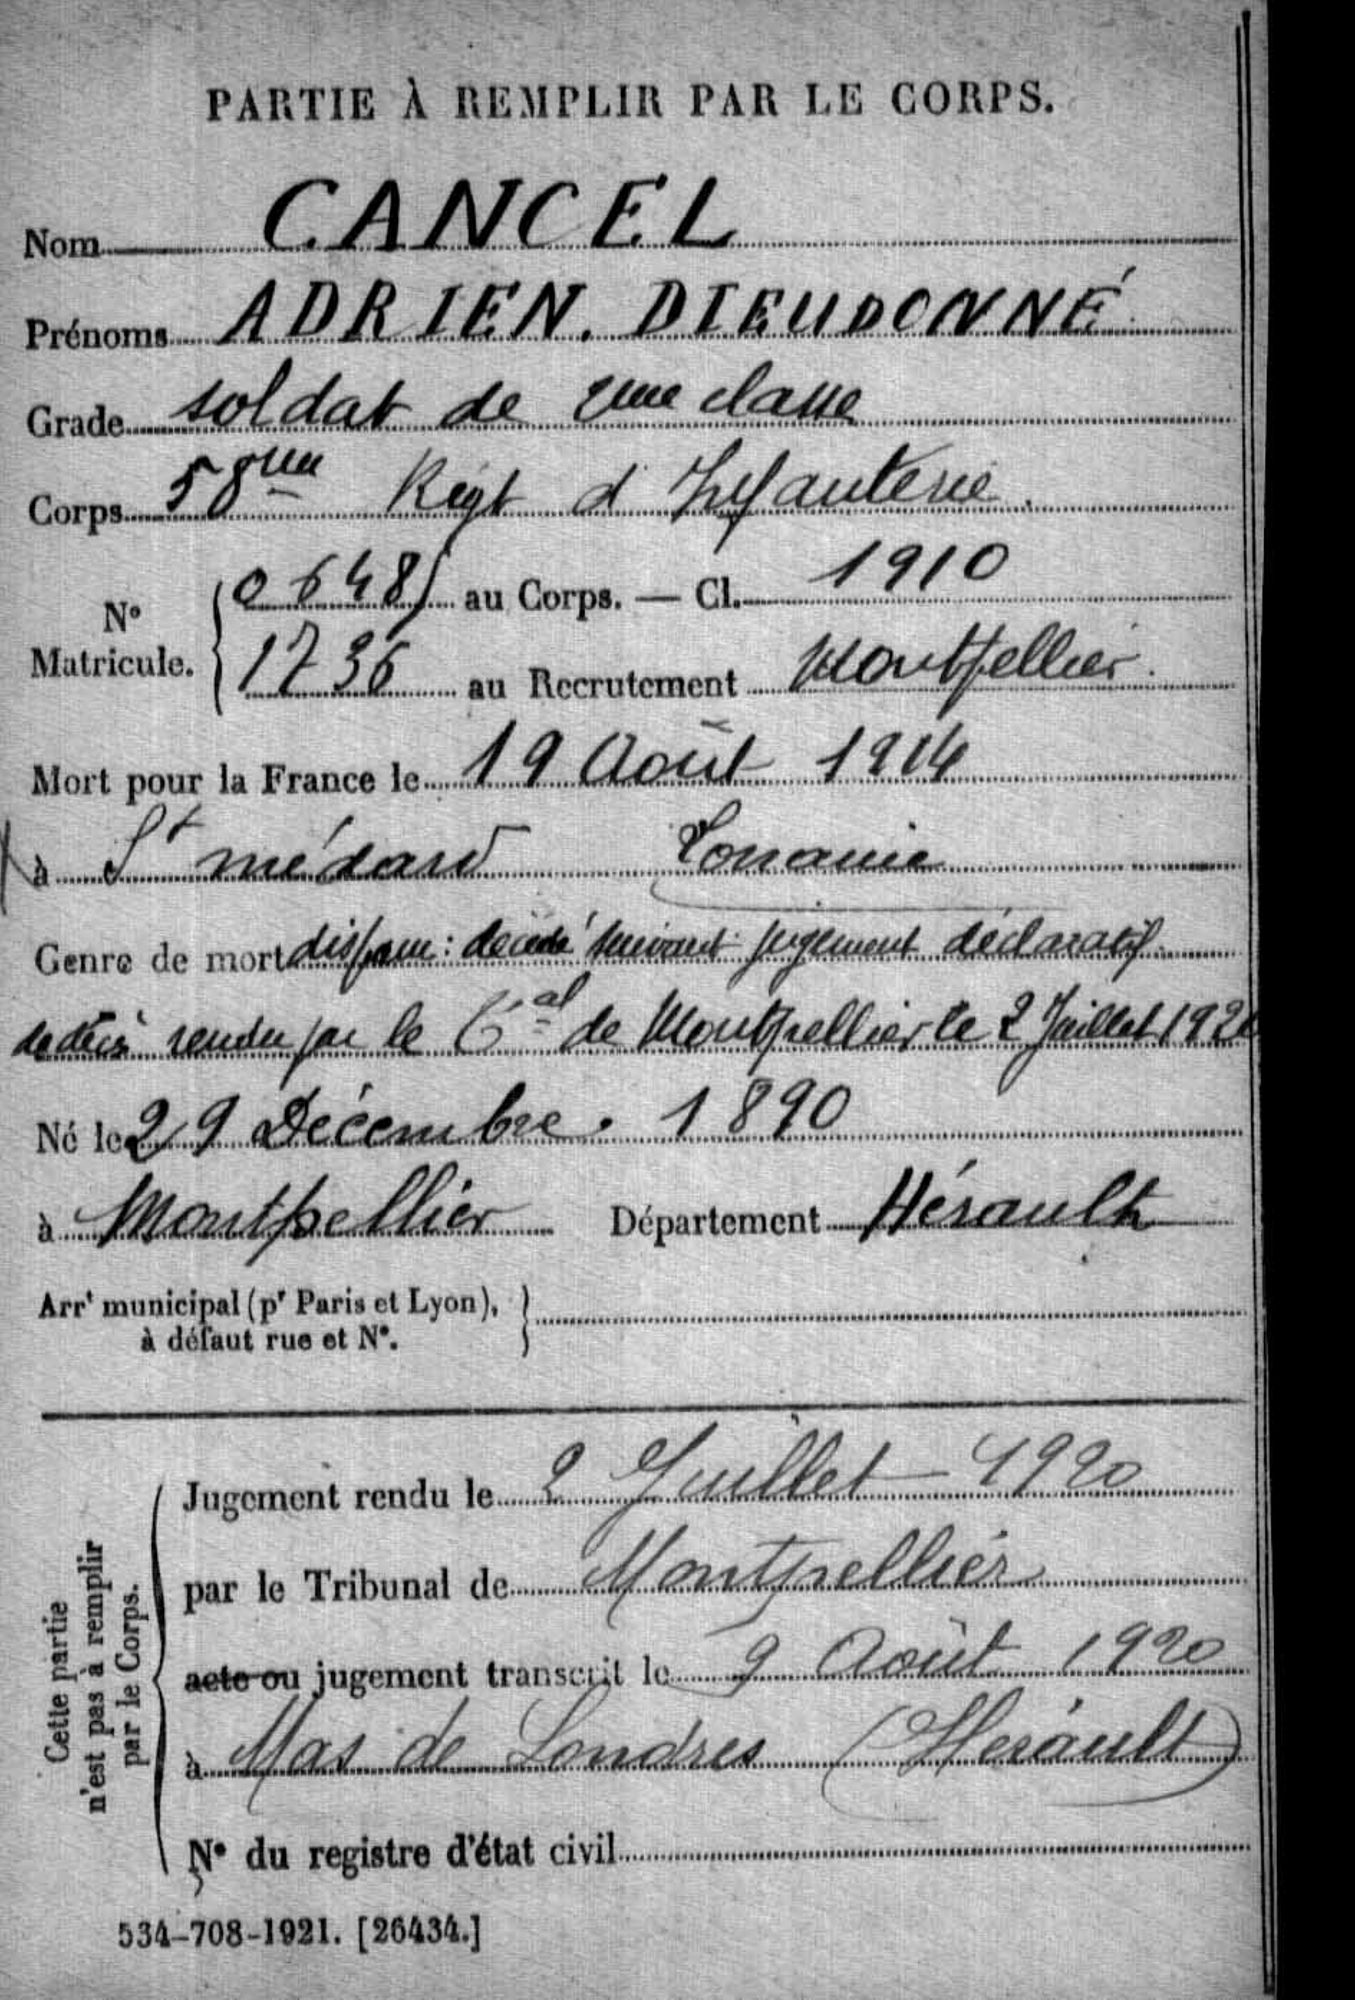 PARTIE À REMPLIR PAR LE CORPS.
Nom CANCEL
Prénoms ADRIEN. DIEUDONNÉ
Grade soldat de 2me classe
Corps 58me Régt d'Infanterie.
N° Matricule. { 06485 au Corps. — Cl. 1910
1736 au Recrutement Montpellier.
Mort pour la France le 19 Août 1914
à St médard Lorraine
Genre de mort disparu : décédé suivant jugement déclaratif
de décès rendu par le Cal de Montpellier le 2 Juillet 1920
Né le 29 Décembre. 1890
à Montpellier Département Hérault
Arrt municipal (pr Paris et Lyon), }
à défaut rue et N°.
Cette partie
n'est pas à remplir
par le Corps.
Jugement rendu le 2 Juillet 1920
par le Tribunal de Montpellier
acte ou jugement transcrit le 9 Août 1920
à Mas de Londres (Hérault)
N° du registre d'état civil
534-708-1921. [26434.]